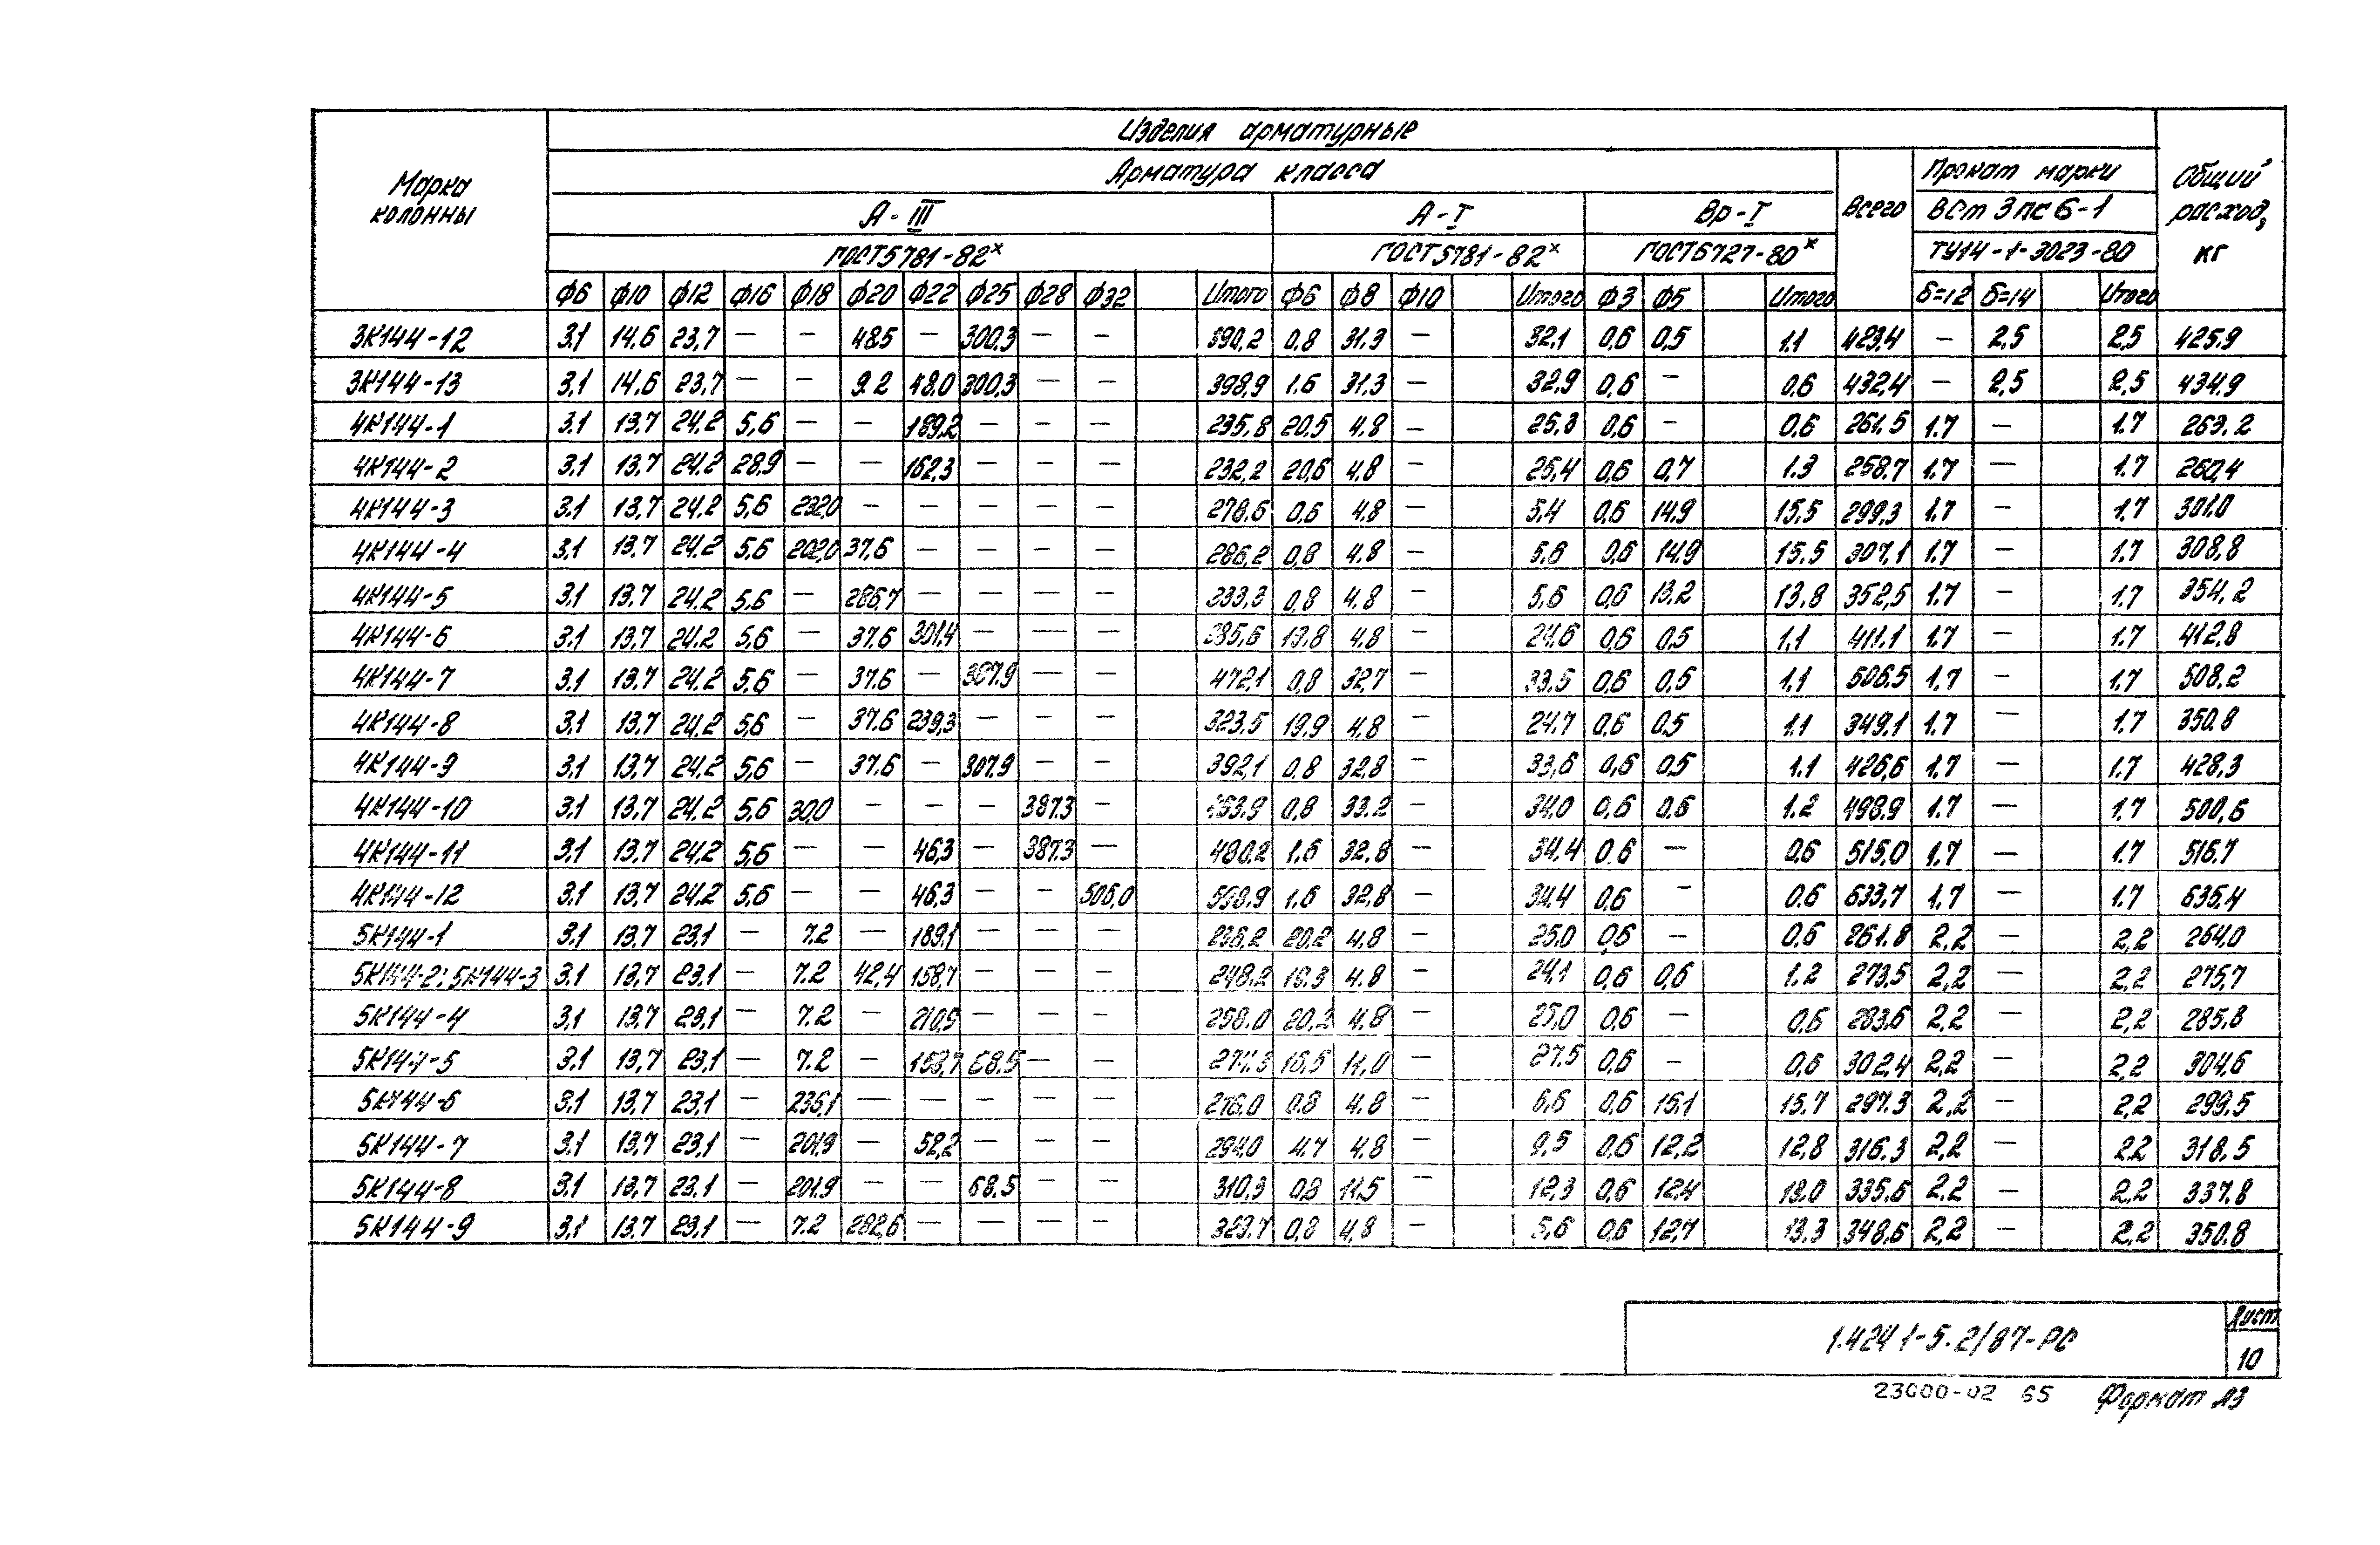 Изделия арматурные
Марка колонны Арматура класса Всего Прокат марки Общий расход, кг
А-III А-I Вр-I ВСт 3пс 6-1
ГОСТ5781-82х ГОСТ5781-82х ГОСТ6727-80х ТУ14-1-3023-80
Ф6 Ф10 Ф12 Ф16 Ф18 Ф20 Ф22 Ф25 Ф28 Ф32 Итого Ф6 Ф8 Ф10 Итого Ф3 Ф5 Итого δ=12 δ=14 Итого
3К144-12 3.1 14.6 23,7 — — 48.5 — 300.3 — — 390,2 0.8 31.3 — 32,1 0,6 0,5 1.1 423,4 — 2,5 2,5 425.9
3К144-13 3,1 14.6 23.7 — — 9.2 48.0 300,3 — — 398,9 1.6 31.3 — 32,9 0,6 — 0,6 432,4 — 2,5 2,5 434.9
4К144-1 3.1 13.7 24.2 5,6 — — 189,2 — — — 235,8 20,5 4.8 — 25,3 0,6 — 0,6 261.5 1.7 — 1.7 263.2
4К144-2 3.1 13.7 24.2 28,9 — — 162,3 — — — 232,2 20,6 4.8 — 25,4 0,6 0,7 1.3 258.7 1.7 — 1.7 260,4
4К144-3 3.1 13,7 24.2 5,6 232,0 — — — — — 278,6 0,6 4.8 — 5,4 0,6 14,9 15,5 299,3 1.7 — 1.7 301.0
4К144-4 3.1 13.7 24.2 5,6 202,0 37.6 — — — — 286,2 0,8 4.8 — 5,6 0,6 14,9 15,5 307,1 1.7 — 1.7 308,8
4К144-5 3,1 13,7 24,2 5,6 — 286,7 — — — — 333,3 0,8 4,8 — 5,6 0,6 13,2 13,8 352,5 1.7 — 1.7 354,2
4К144-6 3.1 13,7 24.2 5,6 — 37.6 301,4 — — — 385,6 19,8 4.8 — 24,6 0,6 0,5 1,1 411.1 1.7 — 1.7 412,8
4К144-7 3.1 13,7 24,2 5,6 — 37.6 — 387.9 — — 472,1 0,8 32,7 — 33,5 0,6 0,5 1,1 506,5 1.7 — 1.7 508.2
4К144-8 3,1 13,7 24,2 5,6 — 37.6 239,3 — — — 323,5 19,9 4.8 — 24,7 0,6 0,5 1.1 349,1 1.7 — 1.7 350.8
4К144-9 3,1 13.7 24.2 5,6 — 37.6 — 307.9 — — 392,1 0,8 32,8 — 33,6 0,6 0,5 1.1 426,6 1.7 — 1.7 428,3
4К144-10 3,1 13.7 24,2 5,6 30,0 — — — 387.3 — 0,8 33.2 — 34,0 0,6 0,6 1.2 498,9 1.7 — 1.7 500,6
4К144-11 3,1 13,7 24,2 5,6 — — 46,3 — 387.3 — 480.2 1.6 32,8 — 34,4 0.6 — 0,6 515,0 1.7 — 1.7 516.7
4К144-12 3.1 13,7 24.2 5,6 — — 46,3 — — 506,0 598,9 1.6 32,8 — 34,4 0,6 — 0.6 633,7 1.7 — 1.7 635,4
5К144-1 3.1 13,7 23,1 — 7.2 — 189,1 — — — 236,2 20,2 4.8 — 25,0 0,6 — 0,6 261.8 2,2 — 2,2 264,0
5К144-2; 5К144-3 3,1 13,7 23,1 — 7.2 42,4 158,7 — — — 248,2 19.3 4.8 — 24,1 0,6 0,6 1.2 273,5 2,2 — 2,2 275,7
5К144-4 3,1 13,7 23,1 — 7.2 — 210,9 — — — 258.0 20,2 4,8 — 25,0 0,6 — 0,6 283,6 2,2 — 2,2 285,8
5К144-5 3.1 13,7 23,1 — 7.2 — 158,7 68.5 — — 274.3 16,5 11,0 — 27.5 0,6 — 0,6 302,4 2,2 — 2,2 304,6
5К144-6 3,1 13,7 23,1 — 236,1 — — — — — 276,0 0.8 4.8 — 5,6 0,6 15,1 15.7 297.3 2,2 — 2,2 299,5
5К144-7 3.1 13,7 23,1 — 201,9 — 52,2 — — — 294,0 4.7 4.8 — 9,5 0,6 12,2 12,8 316.3 2,2 — 2.2 318.5
5К144-8 3.1 13,7 23.1 — 201.9 — — 68.5 — — 310,3 0,8 11,5 — 12,3 0,6 12,4 13.0 335,6 2.2 — 2.2 337,8
5К144-9 3,1 13,7 23,1 — 7.2 282,6 — — — — 329.7 0,8 4,8 — 5,6 0,6 12,7 13,3 348,6 2,2 — 2,2 350.8
1.424 1-5.2/87-РС
Лист
10
23000-02 65 Формат А3